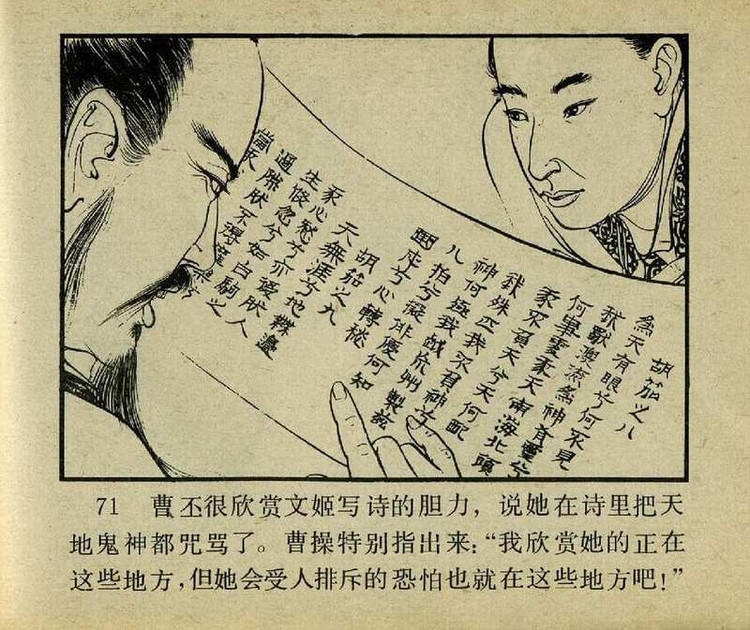 胡笳之八
為天有眼兮何不見
我獨漂流為神有靈兮
何事處我天南海北頭
我不負天兮天何配
我殊匹我不負神兮
神何殛我越荒州製茲
八拍兮擬俳優何知
曲成兮心轉愁
胡笳之九
天無涯兮地無邊
我心愁兮亦復然人
生倏忽兮如白駒之
過隙然不得歡樂
當我
71 曹丕很欣赏文姬写诗的胆力，说她在诗里把天
地鬼神都咒骂了。曹操特别指出来：“我欣赏她的正在
这些地方，但她会受人排斥的恐怕也就在这些地方吧！”